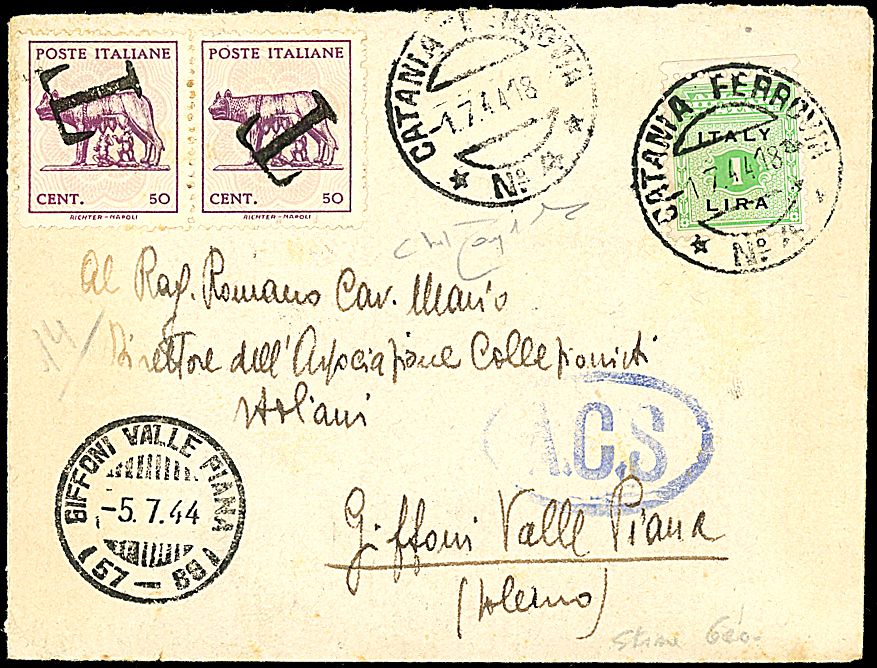 POSTE ITALIANE
T
CENT. 50
RICHTER-NAPOLI
POSTE ITALIANE
T
CENT. 50
RICHTER-NAPOLI
CATANIA FERROVIA
-1.7.44 18
Nº 4
CATANIA FERROVIA
ITALY
1
LIRA
-1.7.44 18
Nº 4
Al Rag. Romano Cav. Mario
Direttore dell'Associazione Collezionisti
Italiani
A.C.S
GIFFONI VALLE PIANA
-5.7.44
(57-89)
Giffoni Valle Piana
(Salerno)